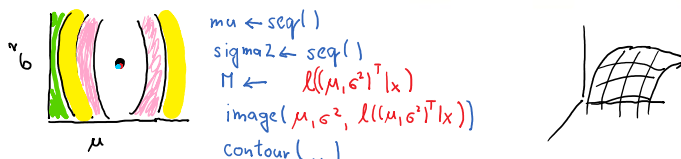 σ²
μ
mu ← seq()
sigma2 ← seq()
M ← l((μ,σ²)ᵀ|x)
image(μ,σ², l((μ,σ²)ᵀ|x))
contour(...)